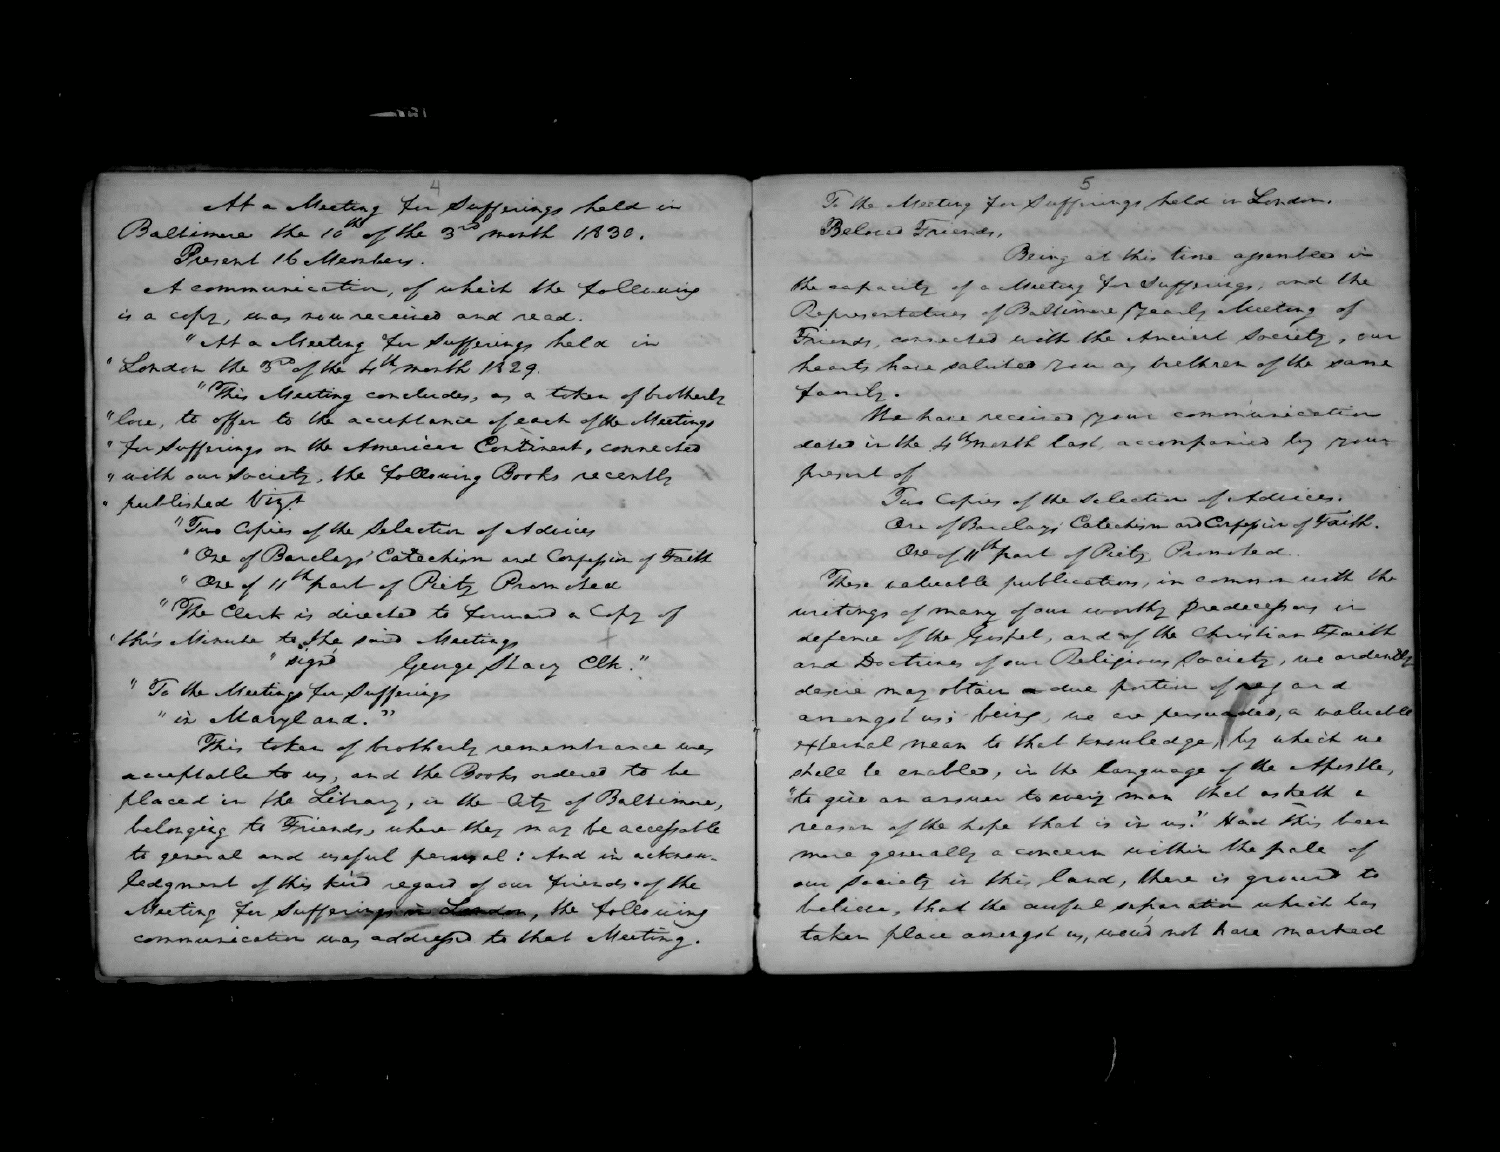 4
At a Meeting for Sufferings held in
Baltimore the 10th of the 3rd month 1830.
Present 16 Members.
A communication, of which the following
is a copy, was now received and read.
"At a Meeting for Sufferings held in
"London the 3rd of the 4th month 1829.
"This Meeting concludes, as a token of brotherly
"love, to offer to the acceptance of each of the Meetings
"for Sufferings on the American Continent, connected
"with our Society, the following Books recently
"published Vizt
"Two Copies of the Selection of Advices
"One of Barclays Catechism and Confession of Faith
"One of 11th part of Piety Promoted
"The Clerk is directed to forward a Copy of
"this Minute to the said Meetings
"signd George Stacy Clk."
"To the Meetings for Sufferings
"in Maryland."
This token of brotherly remembrance was
acceptable to us, and the Books ordered to be
placed in the Library, in the City of Baltimore,
belonging to Friends, where they may be accessable
to general and useful perusal: And in acknow-
ledgment of this kind regard of our friends of the
Meeting for Sufferings in London, the following
communication was addressed to that Meeting.
5
To the Meeting for Sufferings held in London.
Beloved Friends,
Being at this time assembled in
the capacity of a Meeting for Sufferings, and the
Representatives of Baltimore Yearly Meeting of
Friends, connected with the Ancient Society, our
hearts have saluted you as brethren of the same
family.
We have received your communication
dated in the 4th month last, accompanied by your
present of
Two Copies of the Selection of Advices.
One of Barclays Catechism and Confession of Faith.
One of 11th part of Piety Promoted.
These valuable publications, in common with the
writings of many of our worthy predecessors in
defence of the Gospel, and of the Christian Faith
and Doctrines of our Religious Society, we ardently
desire may obtain a due portion of regard
amongst us; being, we are persuaded, a valuable
external mean to that knowledge, by which we
shall be enabled, in the language of the Apostle,
"to give an answer to every man that asketh a
reason of the hope that is in us." Had this been
more generally a concern within the pale of
our Society in this land, there is ground to
believe, that the awful separation which has
taken place amongst us, would not have marked